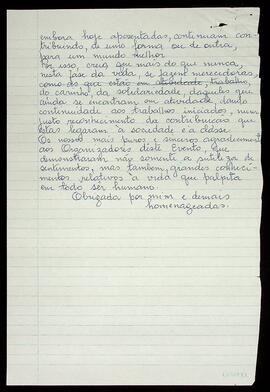 embora hoje aposentadas, continuam con-
tribuindo, de uma forma ou de outra,
para um mundo melhor.
Por isso, creio que mais do que nunca,
nesta fase da vida, se fazem merecedoras,
como as que estão em atividade, trabalho,
do carinho, da solidariedade, daqueles que
ainda se encontram em atividade, dando
continuidade aos trabalhos iniciados, num
justo reconhecimento da contribuição que
estas legaram à sociedade e à classe.
Os nossos mais puros e sinceros agradecimentos
aos Organizadores deste Evento, que
demonstraram não somente a sutileza de
sentimentos, mas também, grandes conheci-
mentos relativos à vida que palpita
em todo ser humano.
Obrigada por mim e demais
homenageadas.